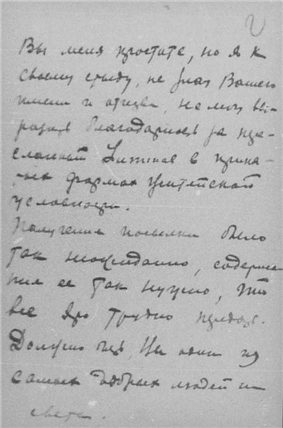 Вы меня простите, но я к
своему стыду, не зная Вашего
имени и отчества, не могу вы-
разить благодарность за
в
формах житейской
условности.
Получение посылки было
так неожиданно, содержа-
ние ее так нужно, что
все это трудно передать.
Должно быть, Вы один из
самых добрых людей на
свете.